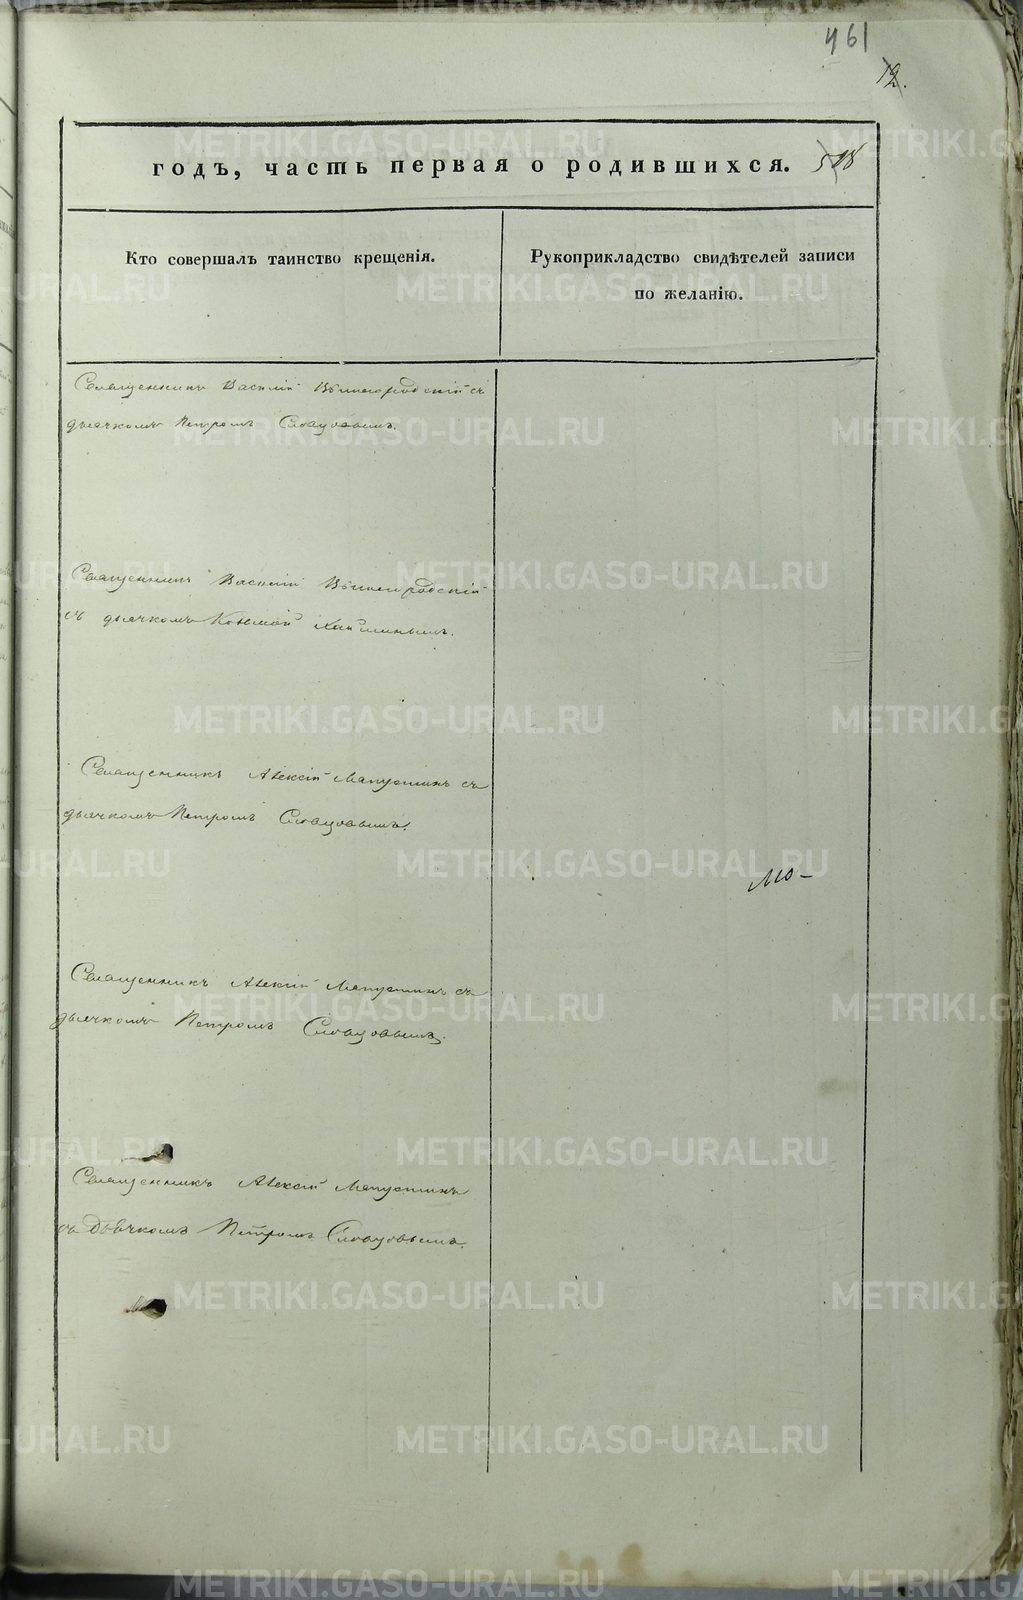 461
12.
годъ, часть первая о родившихся. 518
Кто совершалъ таинство крещенія.
Рукоприкладство свидѣтелей записи
по желанію.
Священникъ Василій Вышегородскій съ
дьячкомъ Петромъ Словцовымъ.
Священникъ Василій Вышегородскій
съ дьячкомъ Козьмой
Священникъ Алексій Мапустинъ съ
дьячкомъ Петромъ Словцовымъ.
мо-
Священникъ Алексій Мапустинъ съ
дьячкомъ Петромъ Словцовымъ.
Священникъ Алексій Мапустинъ
съ Дьячкомъ Петромъ Словцовымъ.
METRIKI.GASO-URAL.RU